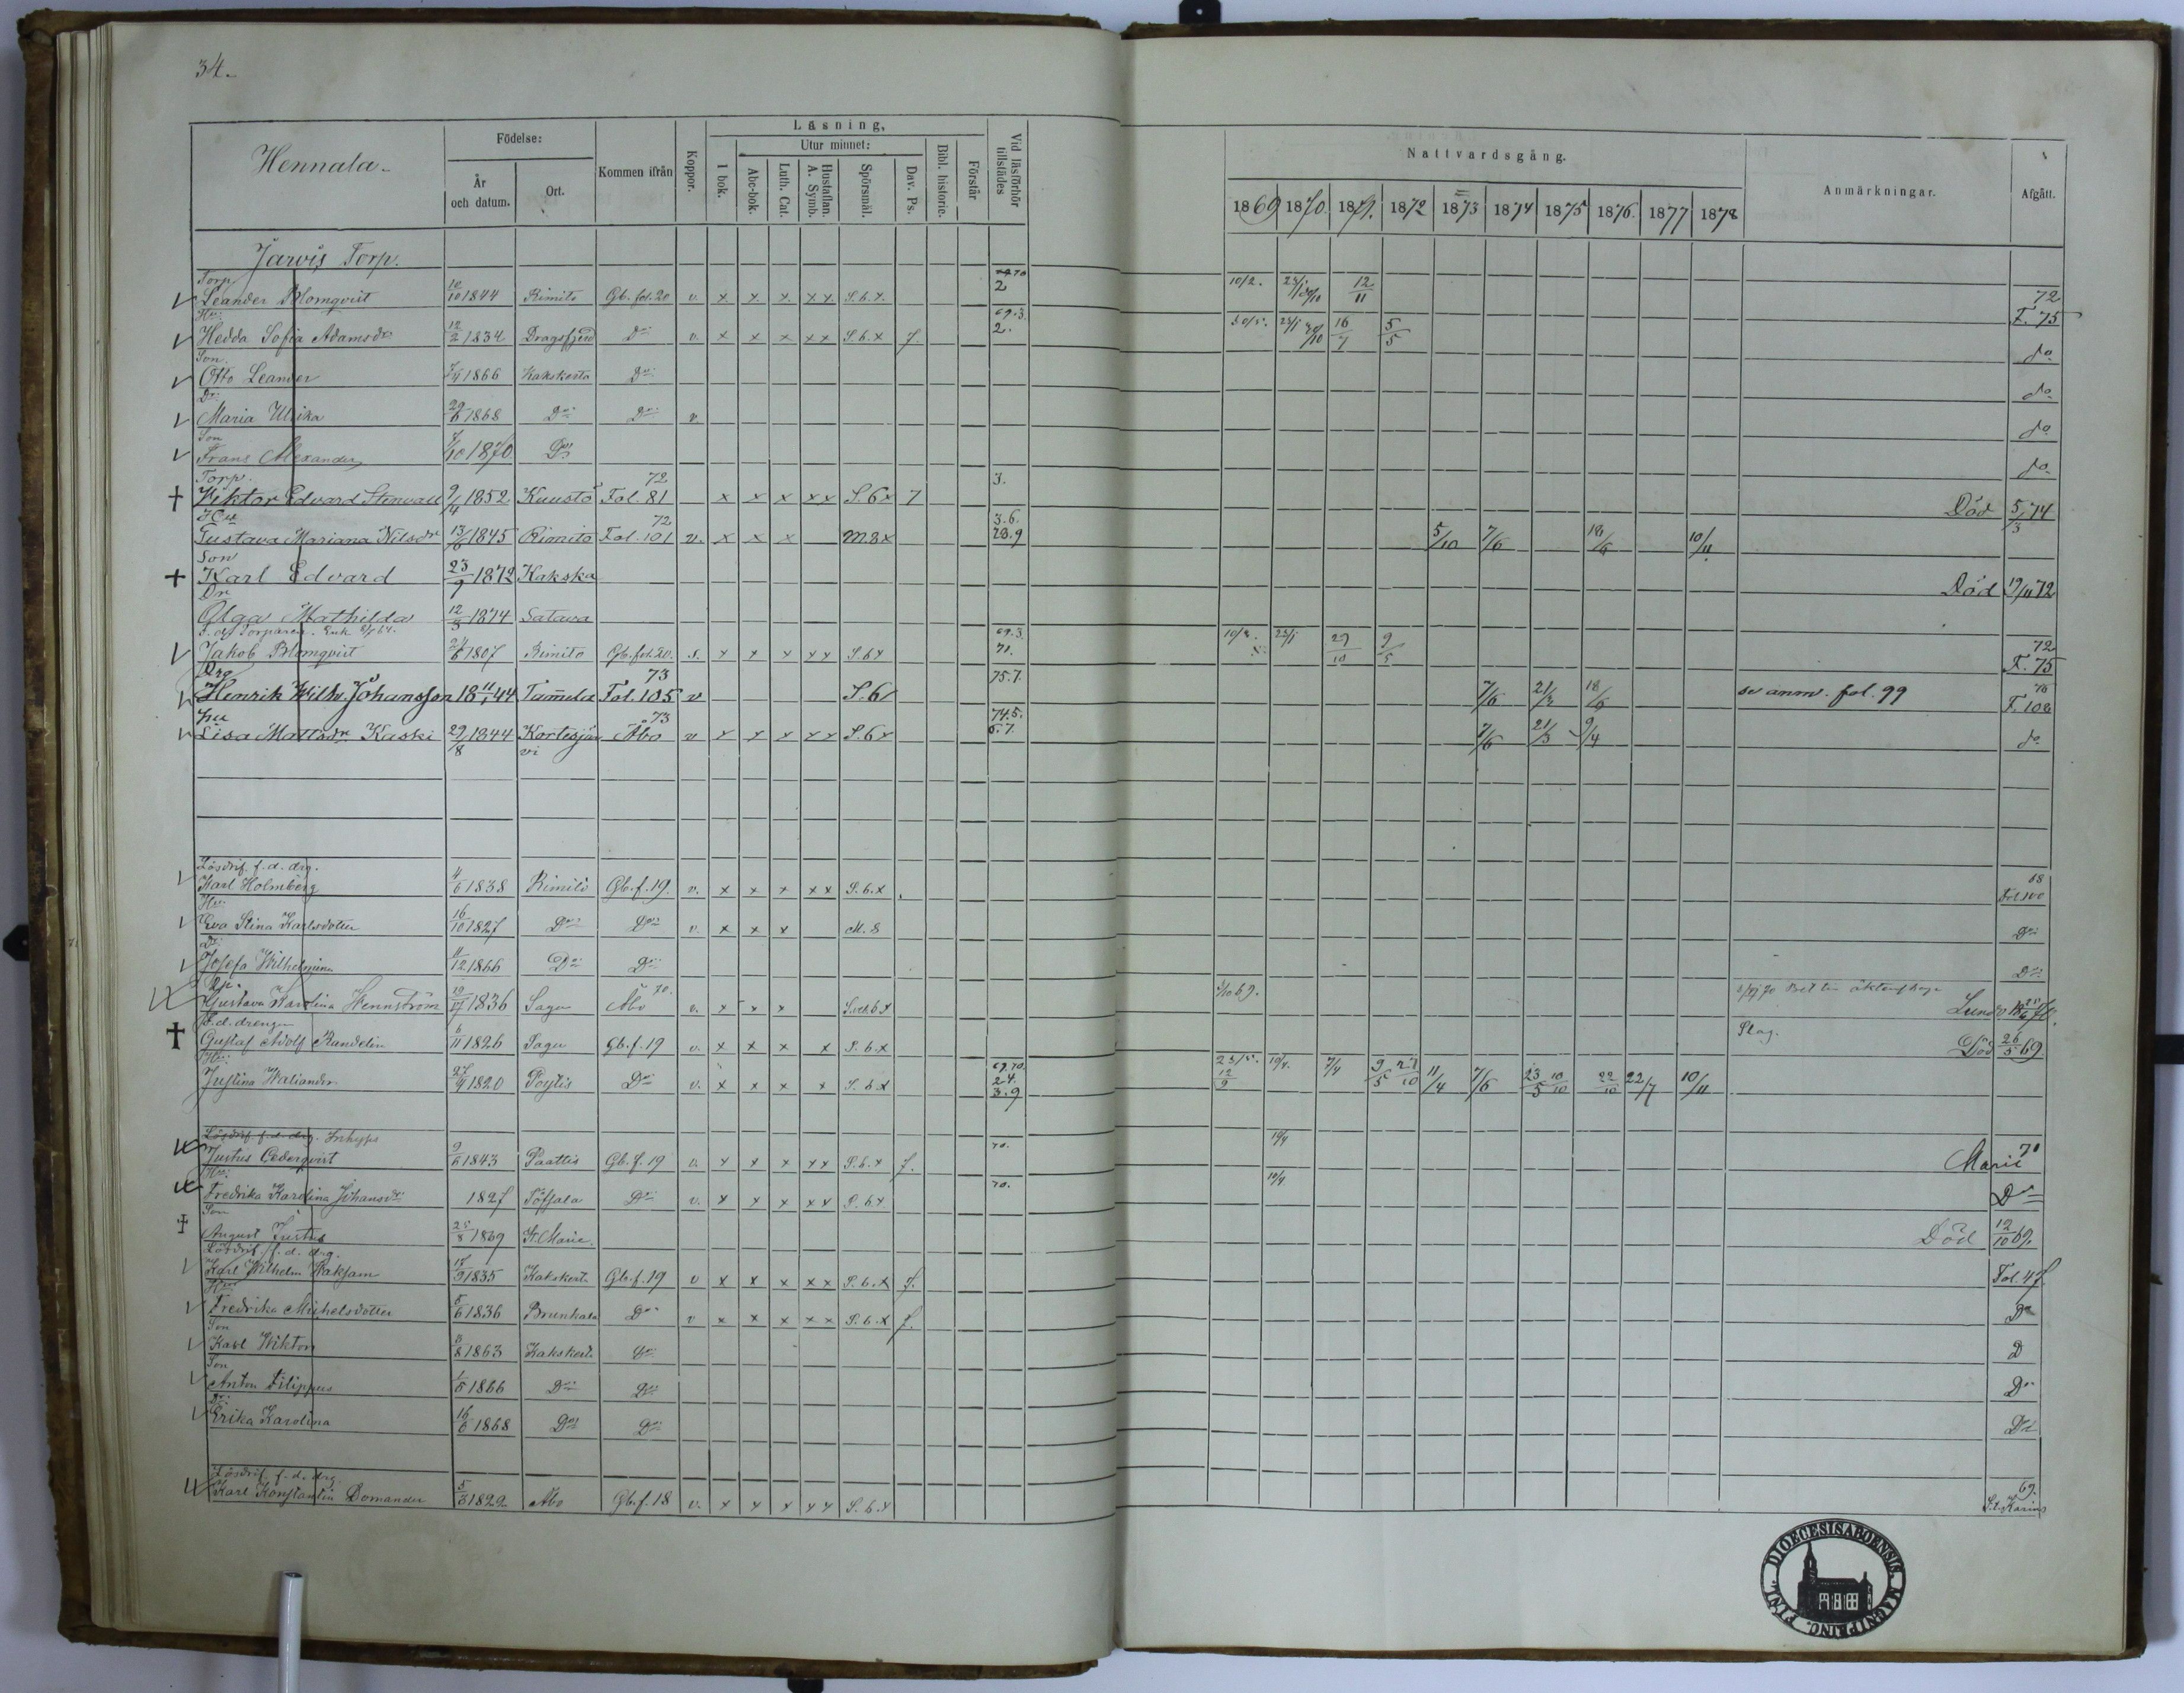 34.
Hennala.
Födelse:
År och datum.
Ort.
Kommen ifrån
Koppor.
Läsning,
I bok.
Utur minnet:
Abc-bok.
Luth. Cat.
Hustaflan. A. Symb.
Spörsmål.
Dav. Ps.
Bibl. historie.
Förstår
Vid läsförhör tillstädes
Nattvardsgång.
1869 1870 1871. 1872 1873 1874 1875 1876. 1877 1878
Anmärkningar.
Afgått.
Järvis Torp.
Torp.
Leander Blomqvist 10/10 1844 Rimito Gb. fol. 20 v. x x x x x S. 6. x. 2 10/2. 12/11 72 F. 75
Hu:
Hedda Sofia Adamsdr 12/2 1834 Dragsfjerd Do v. x x x x x S. 6. x f. 69.3. 2. 16/7 5/5 do
Son.
Otto Leander 1866 Kakskerta Do do
Dr:
Maria Ulrika 29/6 1868 Do Do v. do
Son
Frans Alexander 7/10 1870 Do do
Torp.
Wiktor Edvard Stenvall 9/4 1852 Kuustö Fol. 81 72 x x x x x S. 6 x 7 3. Död 5/3 74
Hu
Gustava Mariana Nilsdr 13/6 1845 Rimito Fol. 101 72 v. x x x M. 8 x 3.6. 28.9 5/10 7/6 18/6 10/11
Son
Karl Edvard 23/9 1872 Kakska Död 19/11 72
Dr
Olga Mathilda 12/3 1874 Satava
F. d. Torparen. Enk.
Jakob Blomqvist 24/6 1807 Rimito Gb. fol. 20. s. x x x x x S. 6 x 69.3. 71. 29/10 9/5 72 F. 75
Drg
Henrik Wilh. Johansson 18 11/1 44 Tammela Fol. 105 73 v S. 6/ 75.7. 7/6 21/3 18/6 se anm. fol. 99 F. 102
Hu
Lisa Mattsdr Kaski 29/8 1844 Kortesjärvi Åbo 73 v x x x x x S. 6 x 74.5. 6.7. 7/6 21/3 9/4 do
Lösdrif. f. d. drg.
Karl Holmberg 4/6 1838 Rimito Gb. f. 19. v. x x x x x S. 6. x 68 Fol. 100
Hu:
Eva Stina Karlsdotter 16/10 1827 Do Do v. x x x M. 8 Do
Dr:
Josefa Wilhelmina 11/12 1866 Do Do Do
Gustava Karolina Wennström 1836 Sagu Åbo 70. v. x x x 3/10 69. Lundo
F. d. drengen
Gustaf Adolf Randelin 6/11 1826 Sagu Gb. f. 19 v. x x x x S. 6. x Slag. Död 26/5 69
Hu:
Justina Waliander 27/9 1820 Pöytis Do v. x x x x S. 6 x 69.70. 24. 3.9 23/5. 12/9 10/4. 7/4 9/5 27/10 11/4 7/6 23/5 10/10 22/10 22/7 10/11
Lösdrif. f. d. drg. Inhyses
Justus Cederqvist 9/6 1843 Paattis Gb. f. 19 v. x x x x x S. 6. x f. 70. 10/4 Marie 70
Hu:
Fredrika Karolina Johansdr 1827 Töfsala Do v. x x x x x S. 6 x 70. 10/4 Do
Son
August Justus 25/8 1869 St. Marie. Död 12/10 69.
Lösdrif. f. d. drg.
Karl Wilhelm Waksam 17/9 1835 Kakskerta Gb. f. 19 v x x x x x S. 6. x f. Fol. 47
Hu
Fredrika Michelsdotter 5/6 1836 Brunkala Do v x x x x x S. 6. x f. Do
Son
Karl Wiktor 3/8 1863 Kakskerta Do D
Son
Anton Filippus 1/5 1866 Do Do Do
Dr:
Erika Karolina 16/6 1868 Do Do Do
Lösdrif. f. d. drg.
Karl Konstantin Domander 5/3 1822 Åbo Gb. f. 18 v. x x x x x S. 6. x 69. S:t Karins
DIOECESIS ABOENSIS. MAGNI PRINC. FINL.